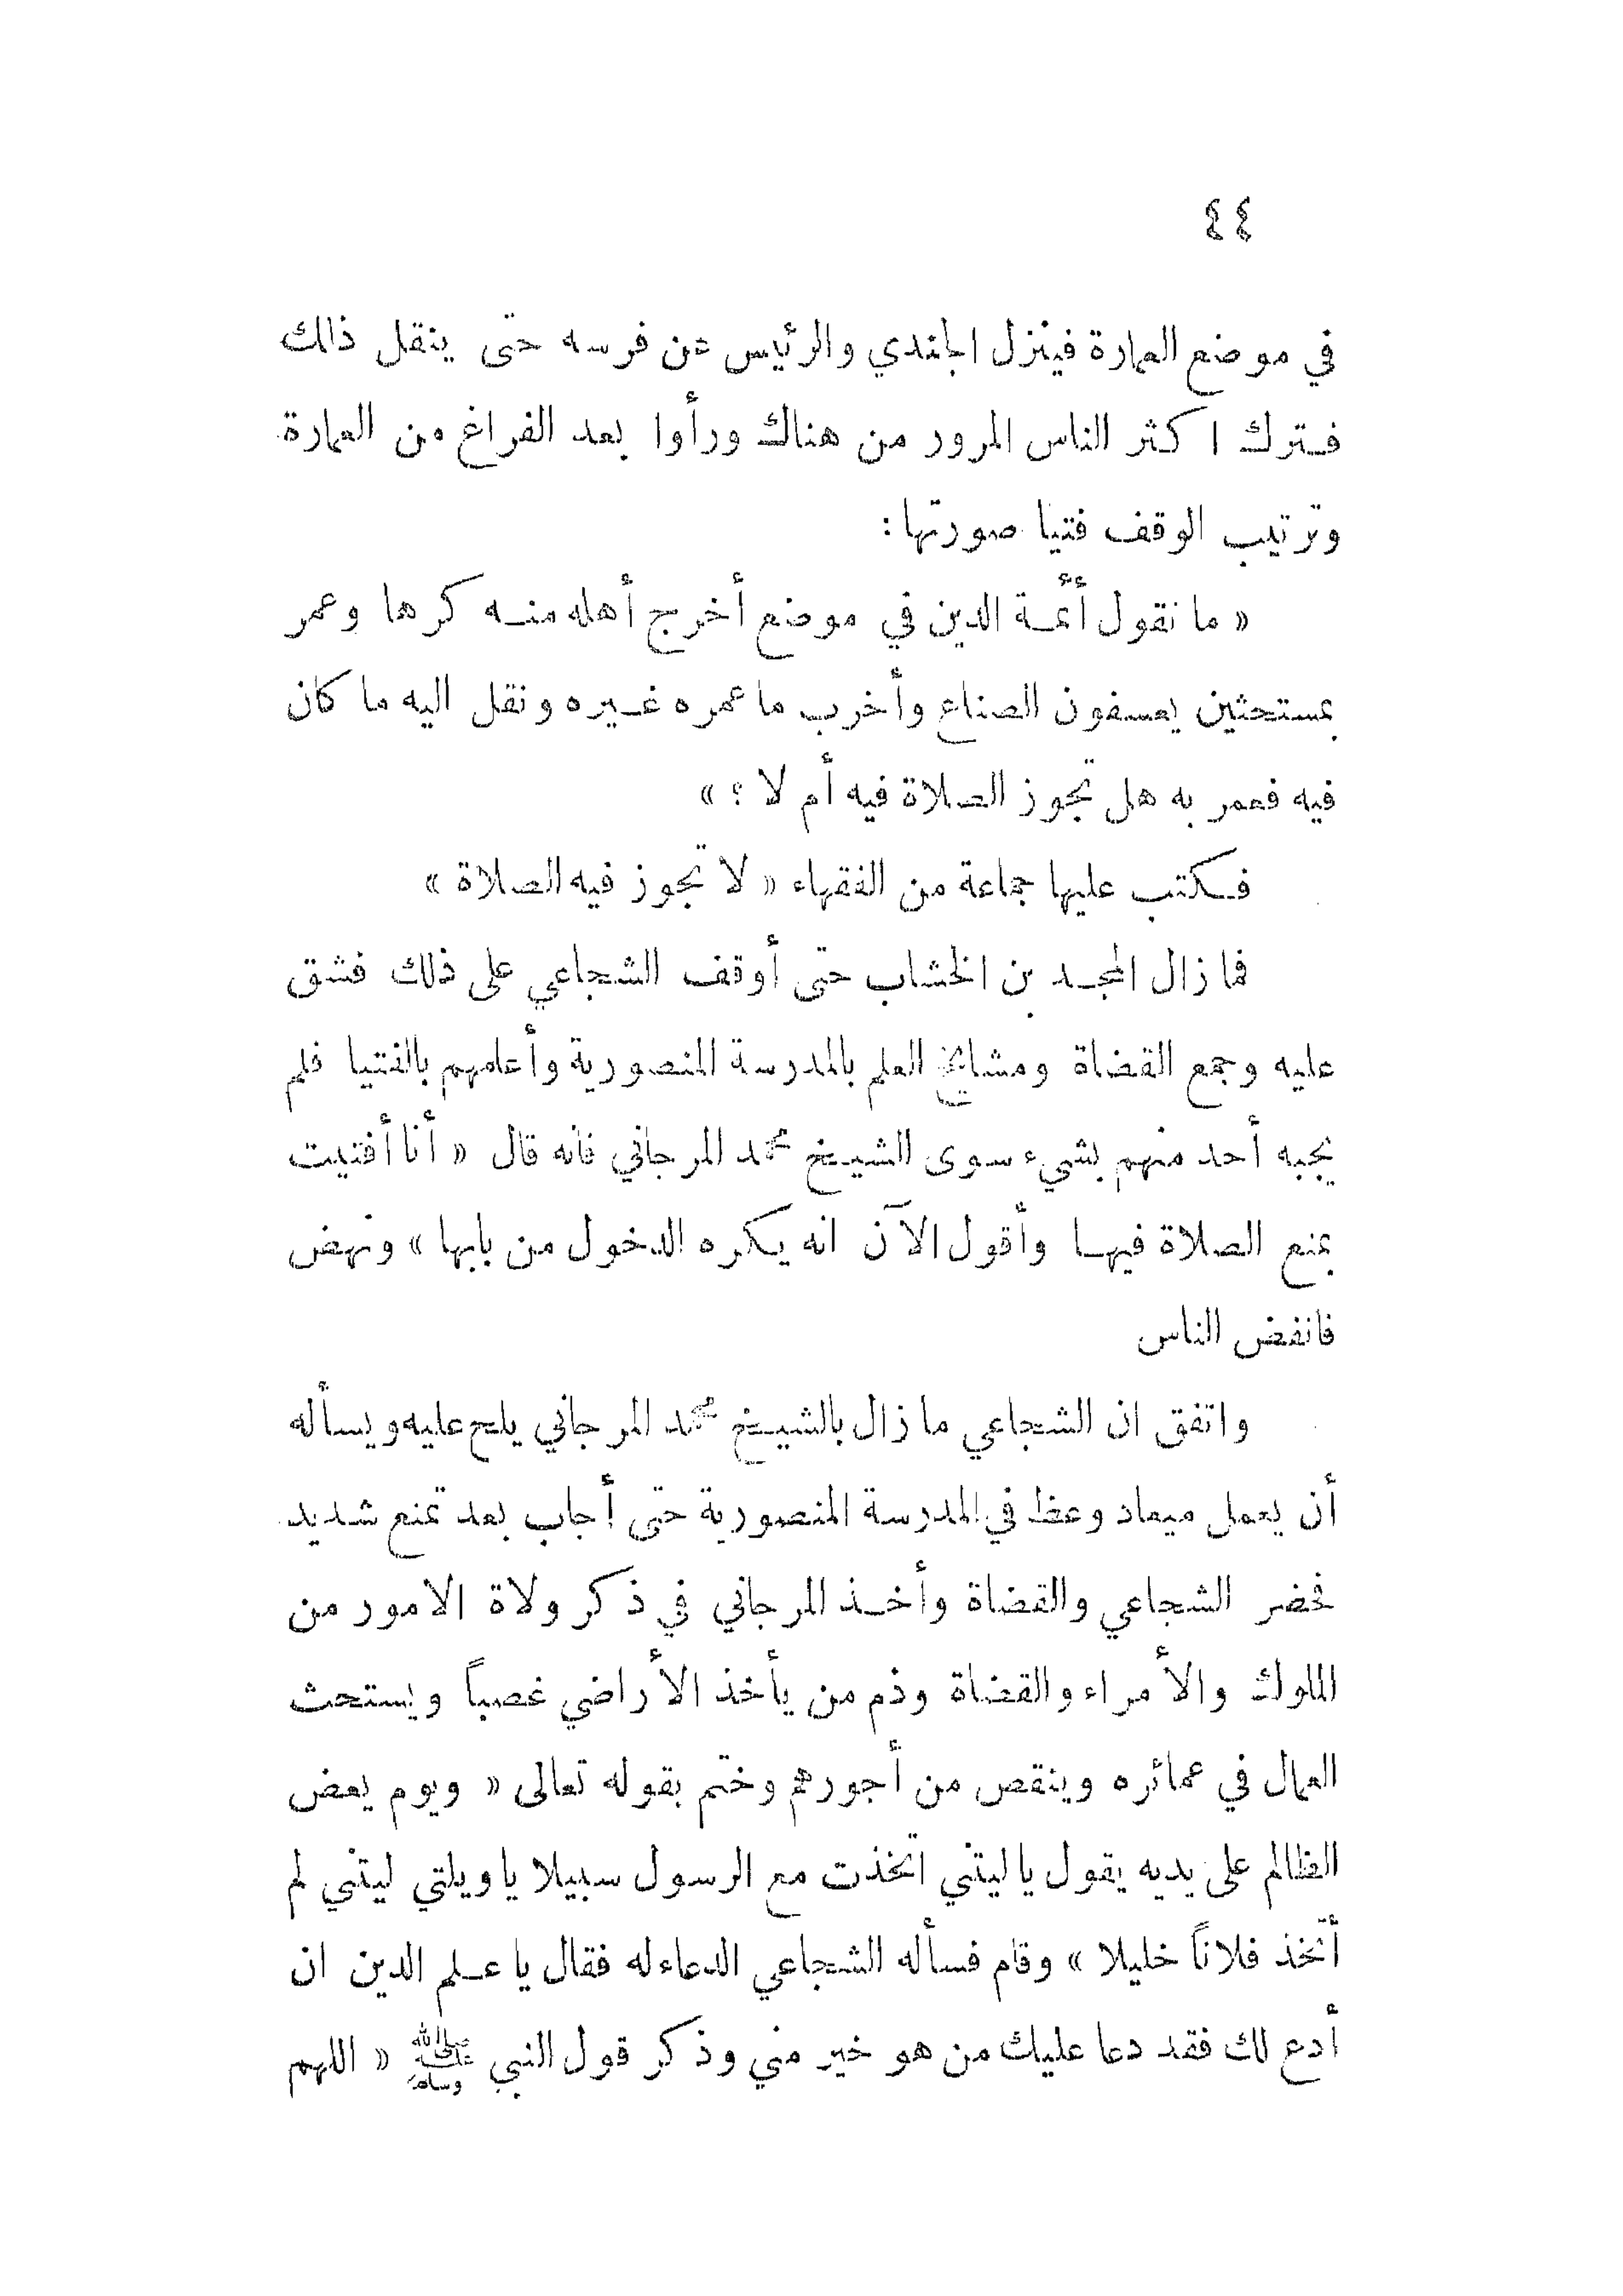 ٤٤
في موضع العمارة فينزل الجندي والرئيس عن فرسه حتى ينقل ذلك
فترك اكثر الناس المرور من هناك ورأوا بعد الفراغ من العمارة
وترتيب الوقف فتيا صورتها:
« ما نقول أئمة الدين في موضع أخرج أهله منه كرها وعمر
بمستحثين يعسفون الصناع وأخرب ما عمره غيره ونقل اليه ما كان
فيه فعمر به هل تجوز الصلاة فيه أم لا ؟ »
فكتب عليها جماعة من الفقهاء « لا تجوز فيه الصلاة »
فما زال المجد بن الخشاب حتى أوقف الشجاعي على ذلك فشق
عليه وجمع القضاة ومشايخ العلم بالمدرسة المنصورية وأعلمهم بالفتيا فلم
يجبه أحد منهم بشيء سوى الشيخ محمد المرجاني فانه قال « أنا أفتيت
بمنع الصلاة فيها وأقول الآن انه يكره الدخول من بابها » ونهض
فانفض الناس
واتفق ان الشجاعي ما زال بالشيخ محمد المرجاني يلح عليه ويسأله
أن يعمل ميعاد وعظ في المدرسة المنصورية حتى أجاب بعد تمنع شديد
فحضر الشجاعي والقضاة وأخذ المرجاني في ذكر ولاة الامور من
الملوك والأمراء والقضاة وذم من يأخذ الأراضي غصباً ويستحث
العمال في عمائره وينقص من أجورهم وختم بقوله تعالى « ويوم يعض
الظالم على يديه يقول يا ليتني اتخذت مع الرسول سبيلا يا ويلتي ليتني لم
أتخذ فلاناً خليلا » وقام فسأله الشجاعي الدعاء له فقال يا علم الدين ان
أدع لك فقد دعا عليك من هو خير مني وذكر قول النبي ﷺ « اللهم